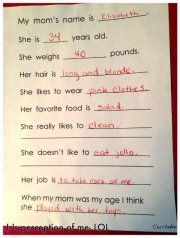 My mom's name is Elizabeth.
She is 34 years old.
She weighs 40 pounds.
Her hair is long and blonde.
She likes to wear pink clothes.
Her favorite food is salad.
She really likes to clean.
She doesn't like to eat jello.
Her job is to take care of me.
When my mom was my age I think
she played with her toys.
perception of me. LOL